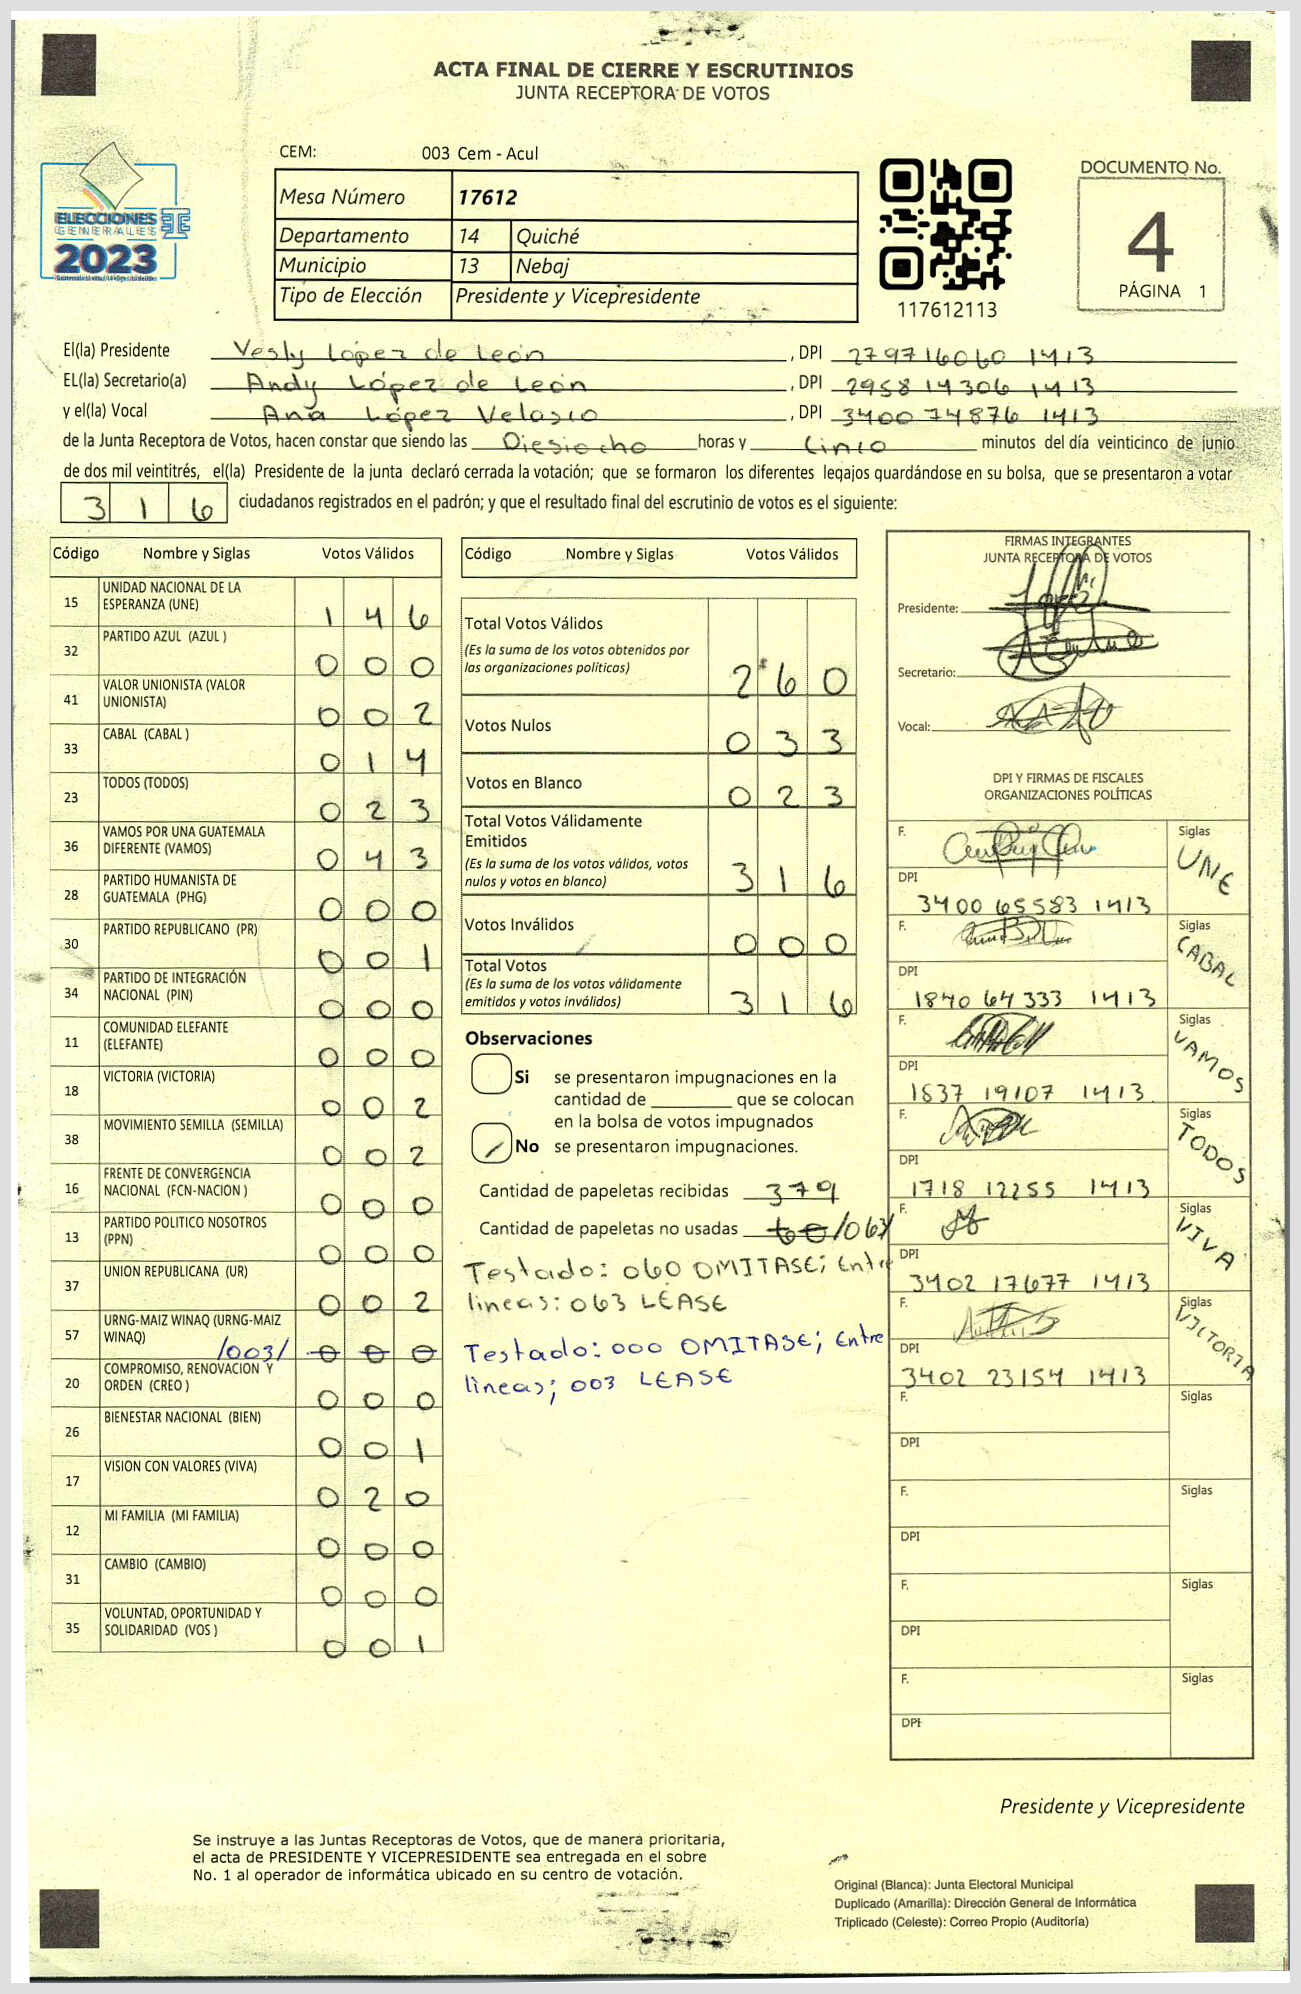 ACTA FINAL DE CIERRE Y ESCRUTINIOS
JUNTA RECEPTORA DE VOTOS
CEM: 003 Cem - Acul
Mesa Número 17612
Departamento 14 Quiché
Municipio 13 Nebaj
Tipo de Elección Presidente y Vicepresidente
ELECCIONES
GENERALES
2023
117612113
DOCUMENTO No.
4
PÁGINA 1
El(la) Presidente Vesly López de León, DPI 279716060 1413
EL(la) Secretario(a) Andy López de León, DPI 2958 14306 1413
y el(la) Vocal Ana López Velasco, DPI 3400 74876 1413
de la Junta Receptora de Votos, hacen constar que siendo las Diesiocho horas y Cinco minutos del día veinticinco de junio
de dos mil veintitrés, el(la) Presidente de la junta declaró cerrada la votación; que se formaron los diferentes legajos guardándose en su bolsa, que se presentaron a votar
316 ciudadanos registrados en el padrón; y que el resultado final del escrutinio de votos es el siguiente:
Código Nombre y Siglas Votos Válidos
15 UNIDAD NACIONAL DE LA
ESPERANZA (UNE) 1 4 6
32 PARTIDO AZUL (AZUL ) 0 0 0
41 VALOR UNIONISTA (VALOR
UNIONISTA) 0 0 2
33 CABAL (CABAL ) 0 1 4
23 TODOS (TODOS) 0 2 3
36 VAMOS POR UNA GUATEMALA
DIFERENTE (VAMOS) 0 4 3
28 PARTIDO HUMANISTA DE
GUATEMALA (PHG) 0 0 0
30 PARTIDO REPUBLICANO (PR) 0 0 1
34 PARTIDO DE INTEGRACIÓN
NACIONAL (PIN) 0 0 0
11 COMUNIDAD ELEFANTE
(ELEFANTE) 0 0 0
18 VICTORIA (VICTORIA) 0 0 2
38 MOVIMIENTO SEMILLA (SEMILLA) 0 0 2
16 FRENTE DE CONVERGENCIA
NACIONAL (FCN-NACION ) 0 0 0
13 PARTIDO POLITICO NOSOTROS
(PPN) 0 0 0
37 UNION REPUBLICANA (UR) 0 0 2
57 URNG-MAIZ WINAQ (URNG-MAIZ
WINAQ) /003/ 0 0 0
20 COMPROMISO, RENOVACION Y
ORDEN (CREO ) 0 0 0
26 BIENESTAR NACIONAL (BIEN) 0 0 1
17 VISION CON VALORES (VIVA) 0 2 0
12 MI FAMILIA (MI FAMILIA) 0 0 0
31 CAMBIO (CAMBIO) 0 0 0
35 VOLUNTAD, OPORTUNIDAD Y
SOLIDARIDAD (VOS ) 0 0 1
Código Nombre y Siglas Votos Válidos
Total Votos Válidos
(Es la suma de los votos obtenidos por
las organizaciones políticas) 2 6 0
Votos Nulos 0 3 3
Votos en Blanco 0 2 3
Total Votos Válidamente
Emitidos
(Es la suma de los votos válidos, votos
nulos y votos en blanco) 3 1 6
Votos Inválidos 0 0 0
Total Votos
(Es la suma de los votos válidamente
emitidos y votos inválidos) 3 1 6
Observaciones
Si se presentaron impugnaciones en la
cantidad de ________ que se colocan
en la bolsa de votos impugnados
No se presentaron impugnaciones.
Cantidad de papeletas recibidas 379
Cantidad de papeletas no usadas 60/063/
Testado: 060 OMITASE; Entre
lineas: 063 LEASE
Testado: 000 OMITASE; Entre
lineas; 003 LEASE
FIRMAS INTEGRANTES
JUNTA RECEPTORA DE VOTOS
Presidente:
Secretario:
Vocal:
DPI Y FIRMAS DE FISCALES
ORGANIZACIONES POLÍTICAS
F. Siglas UNE
DPI 3400 65583 1413
F. Siglas CABAL
DPI 1840 64333 1413
F. Siglas VAMOS
DPI 1837 19107 1413
F. Siglas TODOS
DPI 1718 12255 1413
F. Siglas VIVA
DPI 3402 17677 1413
F. Siglas VICTORIA
DPI 3402 23154 1413
F. Siglas
DPI
F. Siglas
DPI
F. Siglas
DPI
F. Siglas
DPI
Presidente y Vicepresidente
Se instruye a las Juntas Receptoras de Votos, que de manera prioritaria,
el acta de PRESIDENTE Y VICEPRESIDENTE sea entregada en el sobre
No. 1 al operador de informática ubicado en su centro de votación.
Original (Blanca): Junta Electoral Municipal
Duplicado (Amarilla): Dirección General de Informática
Triplicado (Celeste): Correo Propio (Auditoría)